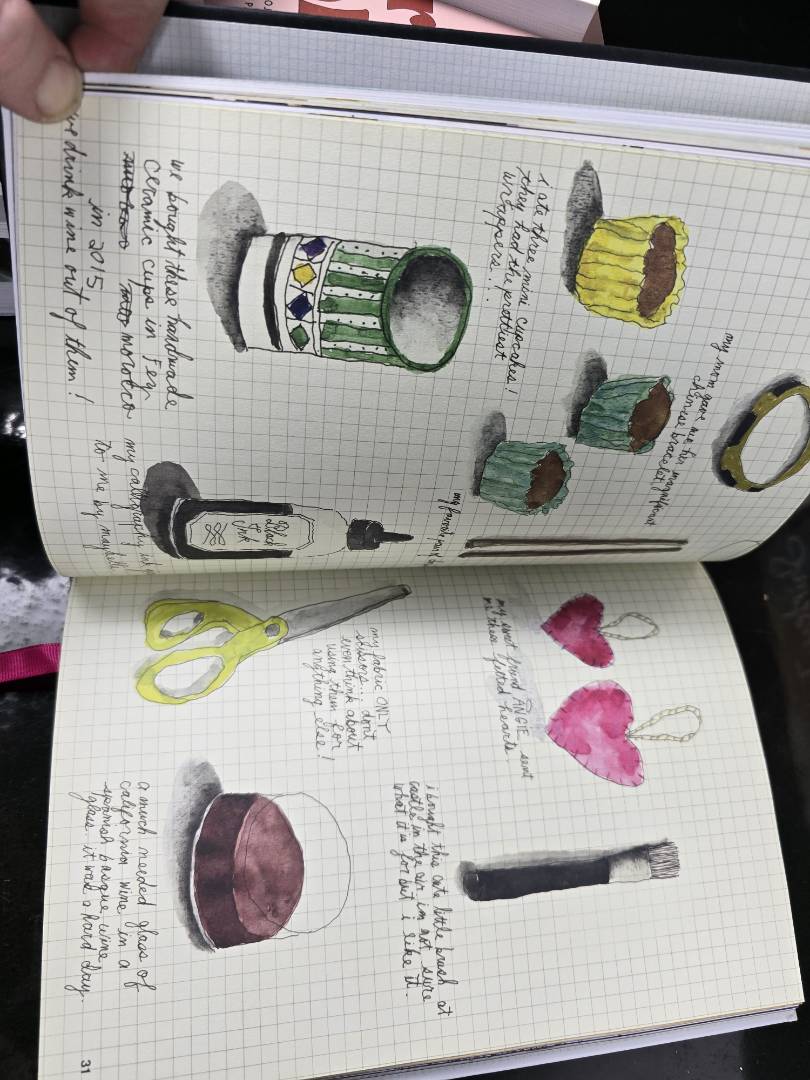 my mom gave me her magnificent
chinese bracelet
i ate three mini cupcakes!
they had the prettiest
wrappers....
my favorite paint
we bought these handmade
ceramic cups in Fez
morocco
in 2015
we drink wine out of them!
Black
Ink
my calligraphy ink
to me by
my sweet friend ANGIE sent
me these felted hearts
i bought this cute little brush at
castle in the air im not sure
what it is for but i like it.
my fabric ONLY
scissors... dont
even think about
using them for
anything else!
a much needed glass of
california wine in a
spanish basque wine
glass... it was a hard day.
31